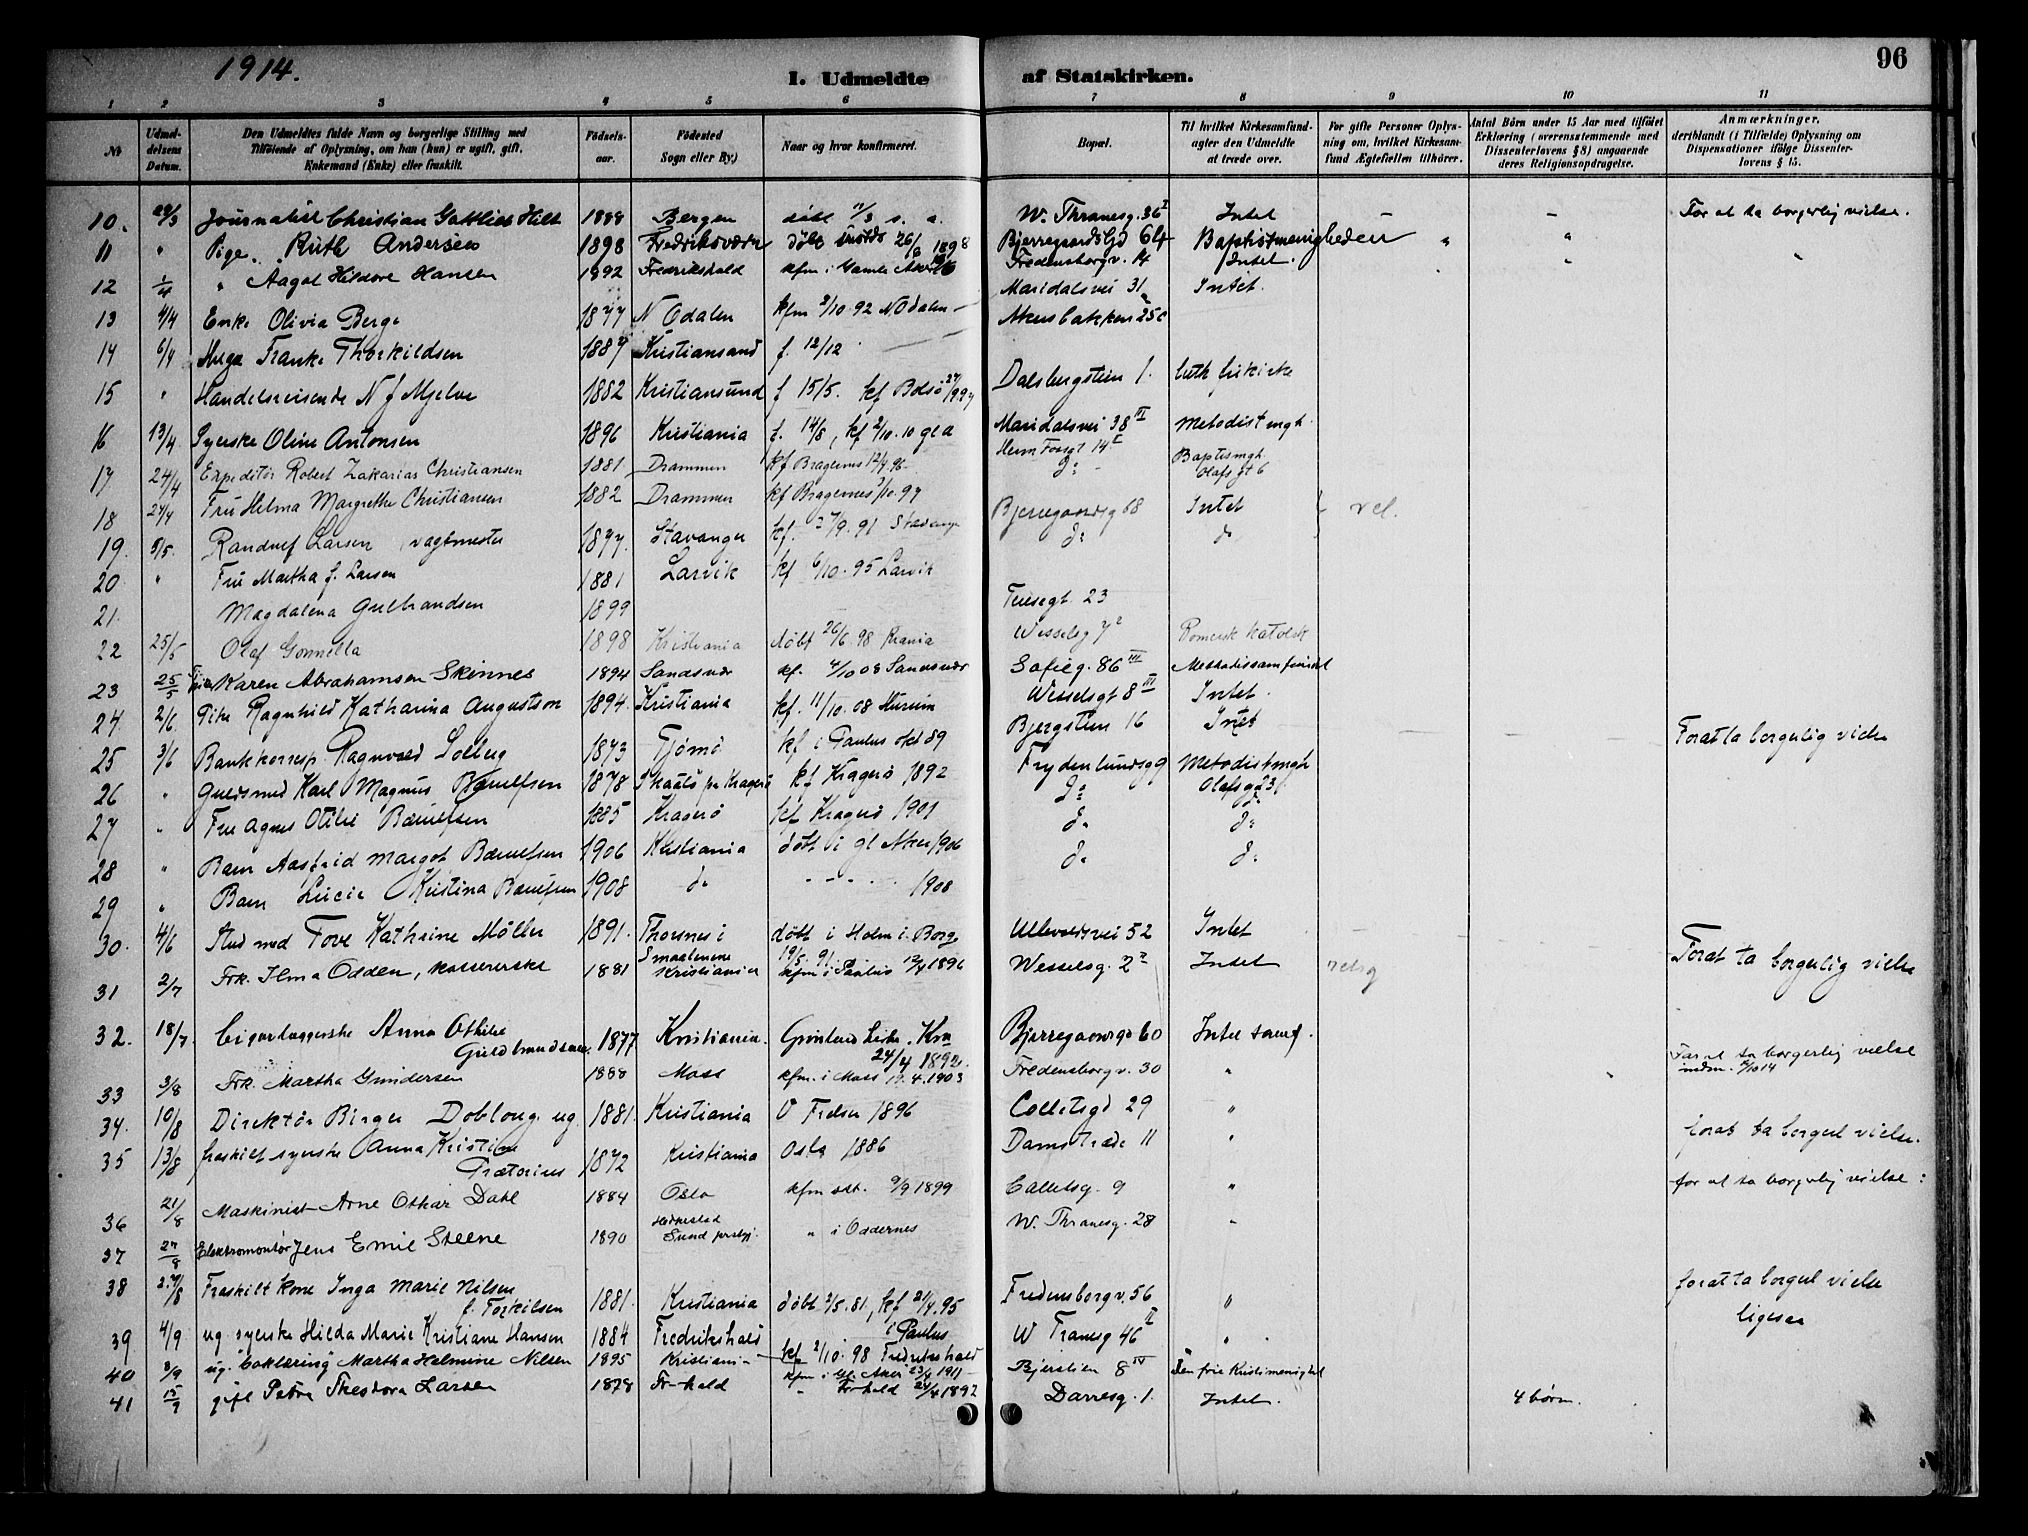 1914.
I. Udmeldte af Statskirken.
96
1 2 3 4 5 6 7 8 9 10 11
No
Udmel-
delsens
Datum.
Den Udmeldtes fulde Navn og borgerlige Stilling med
Tilføiende af Oplysning, om han (hun) er ugift, gift,
Enkemand (Enke) eller fraskilt.
Fødsels-
aar.
Fødested
Sogn eller By.)
Naar og hvor konfirmeret.
Bopæl.
Til hvilket Kirkesamfund
agter den Udmeldte
at træde over.
For gifte Personer Oplys-
ning om, hvilket Kirkesam-
fund Ægtefællen tilhører.
Antal Børn under 15 Aar med tilføiet
Erklæring (overensstemmende med
Dissenterlovens § 8) angaaende
deres Religionsopdragelse.
Anmærkninger.
deriblandt (i Tilfælde) Oplysning om
Dispensationer ifølge Dissenter-
lovens § 15.
10. Journalist Christian Gottlieb Hilt 1888 Bergen døbt 11/3 s. a. W. Thranesg. 36 I Intet - - For at ta borgerlig vielse.
11 " Pige Ruth Andersen 1898 Fredriksværn døbt 26/6 1898 Bjerregaardsgd 64 Baptistmenigheden " "
12 1/4 " Aagot Hildore Hansen 1892 Fredrikshald kfm i Gamle Aker Fredensborgv. 14 Intet.
13 4/4 Enke Olivia Berge 1877 N Odalen kfm 2/10 92 N Odalen Maridalsvei 31 Intet.
14 6/4 Franke Thorkildsen 1887 Kristiansand f. 12/12 Akersbakken 25 c
15 " Handelsreisende N J Mjelve 1882 Kristiansund f 15/5. kf Bdsø Dalsbergstien 1. luth frikirke
16 13/4 Syerske Oline Antonsen 1896 Kristiania f. 14/8, kf 2/10.10 gl a Maridalsvei 38 III Metodistmgh.
17 24/4 Expeditør Robert Zakarias Christiansen 1881 Drammen kf Bragernes 12/4.96 Herm Fossgt 14 I Baptismgh.
Olafsgt 6
18 24/4 Fru Helma Margrethe Christiansen 1882 Drammen kf Bragernes /10.97 do
19. 5/5. Larsen vagtmester 1877. Stavanger kf. 27/9. 91 Stavanger Bjerregaardsg 68 Intet
20 " Fru Martha f. Larsen 1881 Larvik kf 6/10. 95 Larvik do do
21. Magdalena Gulbrandsen 1899 23
22 25/5 Olaf Gonnella 1898 Kristiania døbt 26/6 98 Krania Wesselsg 7 2 Romersk katolsk
23 25/5 Karen Abrahamsen Skinnes 1894 Sandsvær kf. 4/10 08 Sandsvær Sofieg. 86 III Metodissamfundet
24. 2/6 Pike Ragnhild Katharina Augustson 1894. Kristiania kf. 11/10. 08 Hurum Wesselsgt 8 III Intet.
25 3/6 Bankkorresp. Ragnvald Solberg 1873 Tjømø kf i Paulus okt 89 Bjergstien 16 Intet Forat ta borgerlig vielse
26 " Guldsmed Karl Magnus 1878 Skaatø pr Kragerø kf Kragerø 1892 Frydenlundsg 9 Metodistmgh
Olafsgd
27 " Fru Agnes Otilie 1885 Kragerø kf Kragerø 1901 do do
28 " Barn Aasfrid Margot 1906 Kristiania døbt i gl Aker 1906 do do
29 " Barn Lucie Kristina 1908 do - - - - 1908 do do
30. 4/6 Stud med Tove Kathrine Møller 1891. Thorsnes i
Smaalenene døbt i Holm i Borge
19/5. 91. Ullevoldsvei 52 Intet Forat ta borgerlig vielse
31 2/7 Frk. Ilma Odden, kassererske 1881 Kristiania kfm i Paulus 12/4 1896 Wesselsg. 2 Intet
32. 18/7. Cigarlæggerske Anna Othilie
Guldbrandsen 1877 Kristiania. Grønland kirke. Kra
24/4 1892. Bjerregaardsgd 60 Intet samf.
33 3/8 Frk. Martha Gundersen 1888 Moss kfm. i Moss .4.1903 Fredensborgv. 30 " For at ta borgerlig vielse
34. 10/8 Direktør Birger Dobloug. ug. 1881. Kristiania V Frelser 1896 Colletsgd 29 " forat ta borgerl vielse.
35 13/8 fraskilt syerske Anna Kristine
Prætorius 1872 Kristiania Oslo 1886 Damstræde 11 "
36 21/8 Maskinist Arne Othar Dahl 1884 Oslo kfm sst. 9/9 1899 Colletsg. 9 " for at ta borgerlig vielse:
37 27/8 Elektromontør Jens Emil Steene 1890 Sund " i Oddernes W. Thranesg. 28 "
38 27/8 Fraskilt kone Inga Marie Nilsen
f. Torkilsen 1881. Kristiania døbt 2/5.81, kf 21/4.95
i Paulus Fredensborgv. 56 " forat ta borgerl vielse
39 4/9 ug syerske Hilda Marie Kristiane Hansen 1884 Fredrikshald kf 2/10. 98 Fredrikshald W Tranesg 46 II " ligesaa
40 8/9 ug. Martha Helmine Nilsen 1895 Kristiania kfm i Gl. Aker 23/4 1911 Bjerstien 8 IV Den frie Kristimenighet
41 15/9 gift Petra Theodora Larsen 1878 Fr-hald " Fr-hald 24/4 1892 Darresg. 1. Intet. 4 børn.